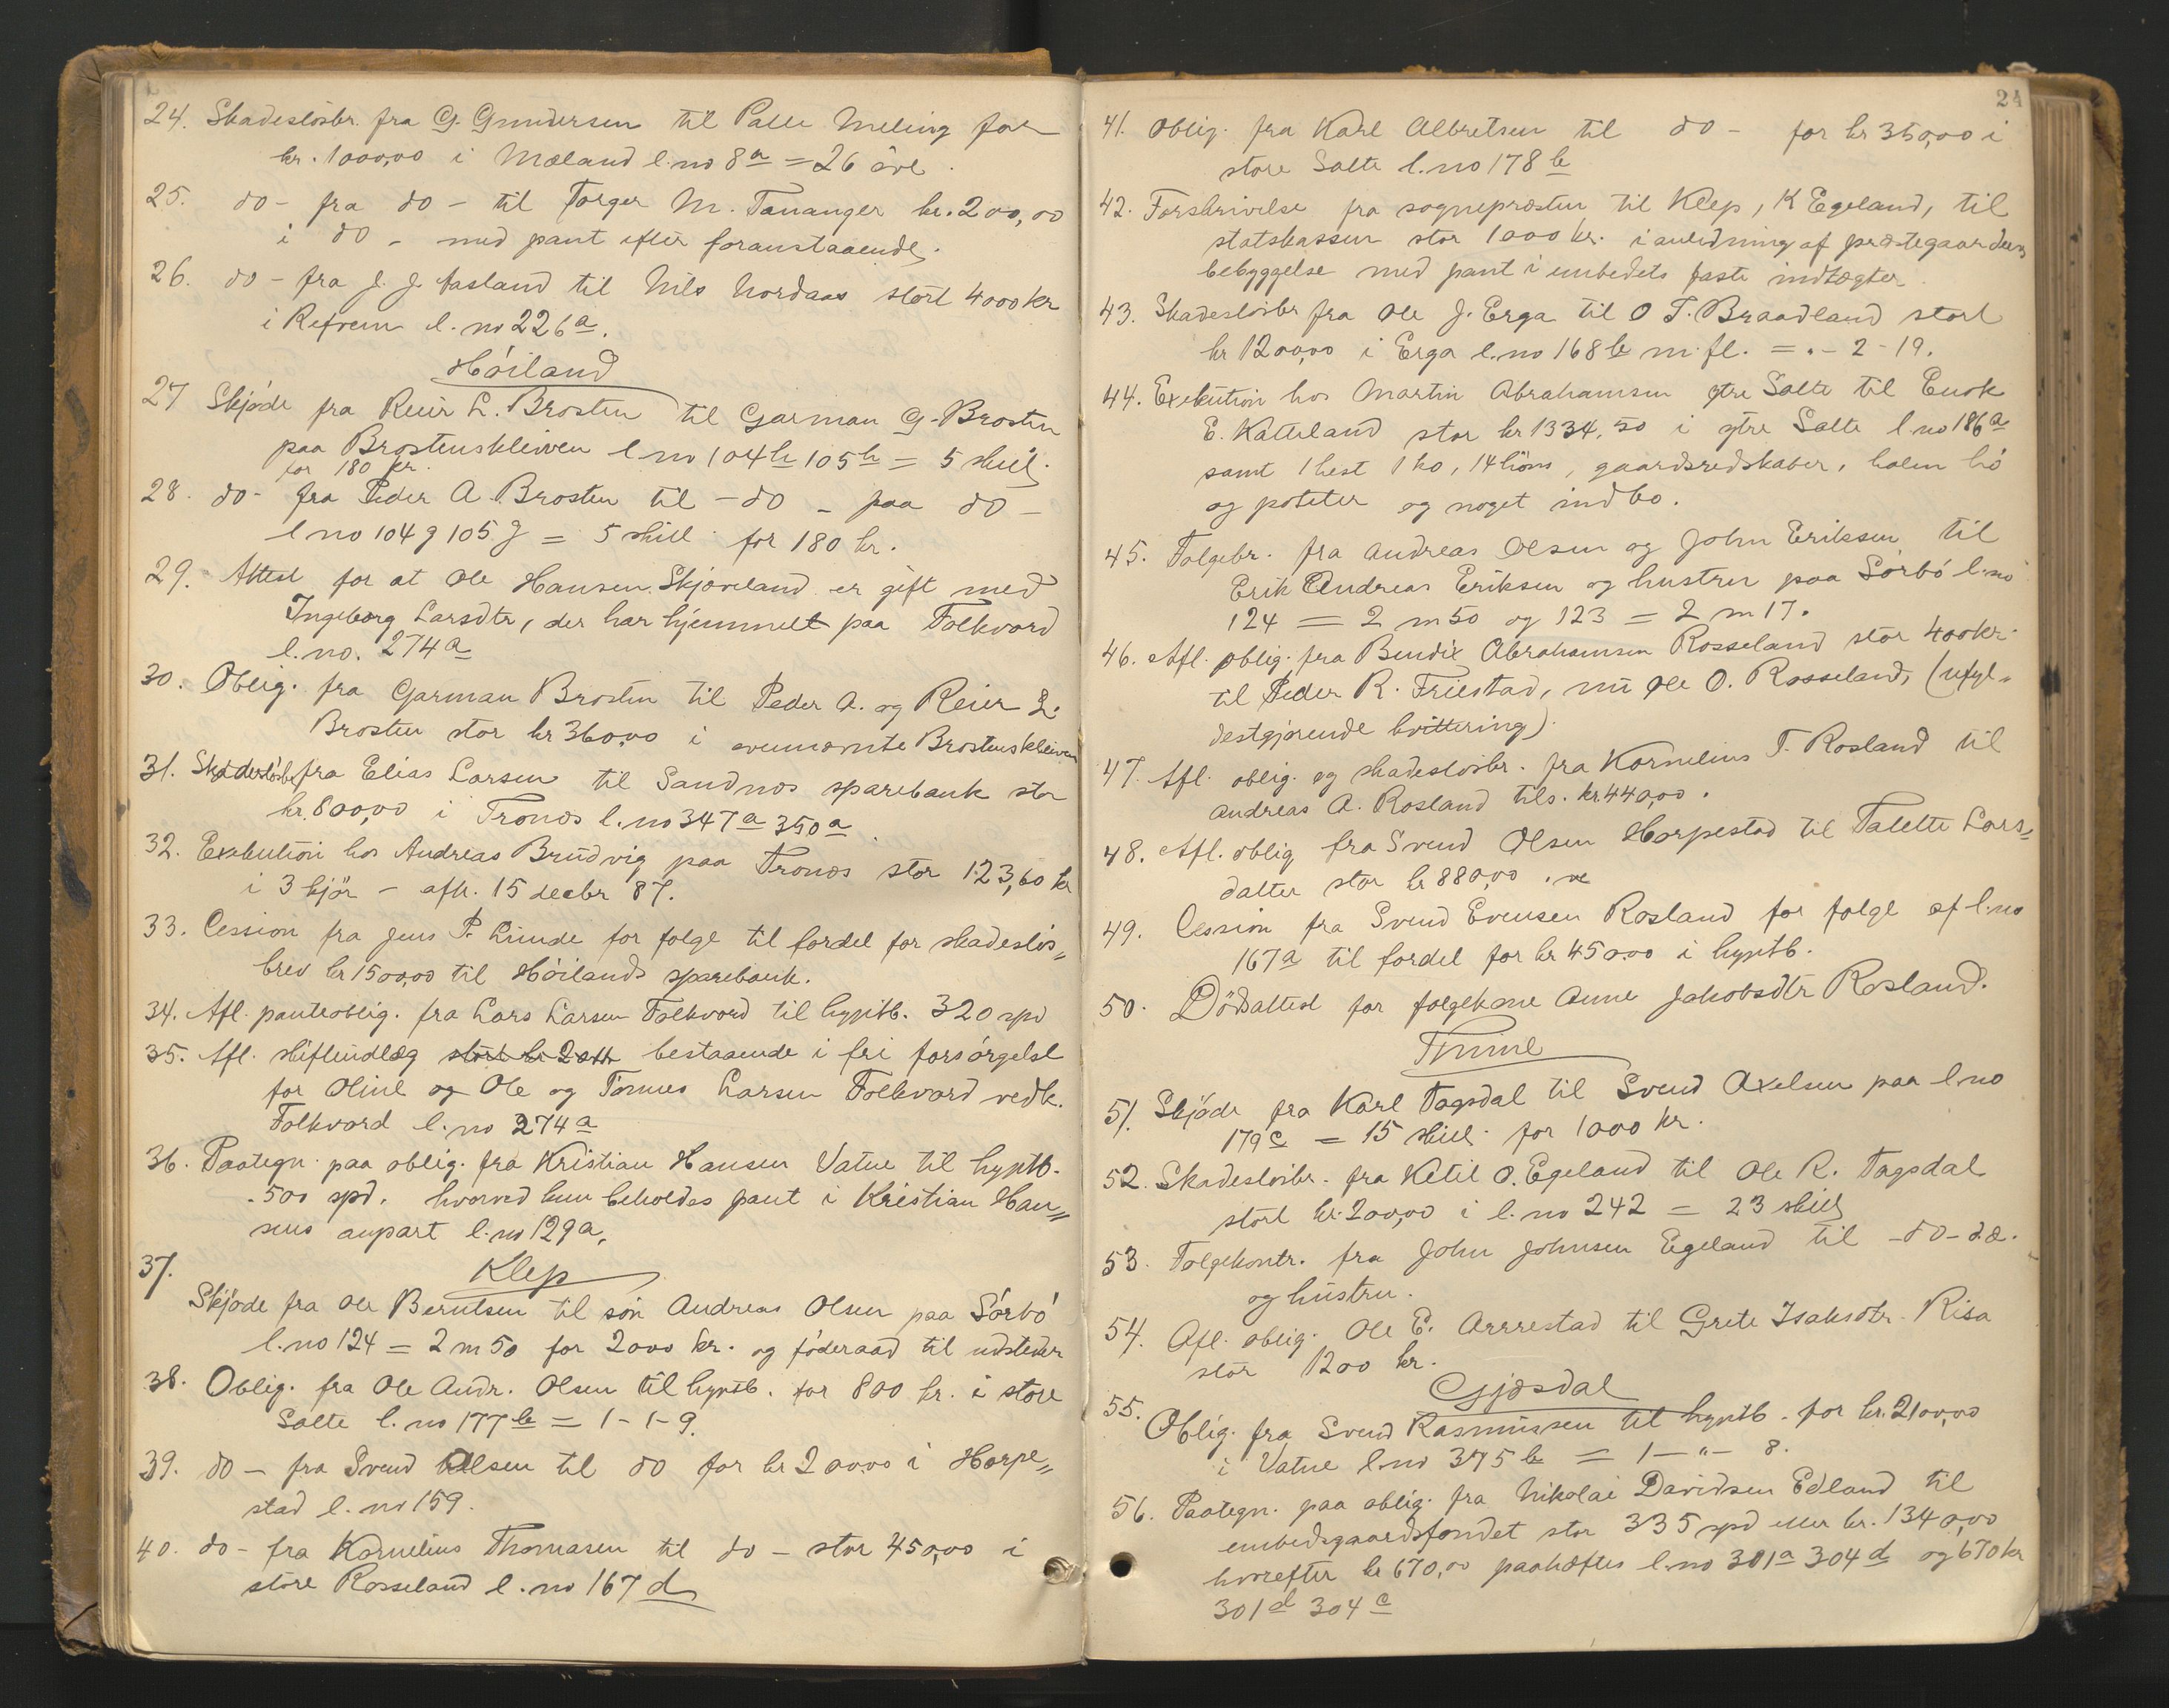 24. Skadeslösbr. fra G. Gundersen til Palle Meling for
kr. 1000,00 i Mæland l.no 8a = 26 öre.
25. do - fra do - til Torger M. Tananger kr. 200,00
i do - med pant efter foranstaaende.
26. do - fra J. J. Aasland til Nils Nordaas stort 4000 kr
i Refsem l. no 226a.
Höiland
27 Skjöde fra Reier L. Brosten til Garman G. Brosten
paa Brostenskleiven l no 104h 105h = 5 skill.
for 180 kr.
28. do - fra Peder A. Brosten til - do - paa do -
l no 104g 105g = 5 skill for 180 kr.
29. Attest for at Ole Hansen Skjæveland er gift med
Ingeborg Larsdtr, der har hjemmelt paa Folkvord
l. no. 274a
30. Oblig. fra Garman Brosten til Peder A. og Reier L.
Brosten stor kr 360,00 i ovennævnte Brostenskleiven
31. Skadeslösbr fra Elias Larsen til Sandnæs sparebank stor
kr. 800,00 i Tronæs l. no 347a 350a
32. Exekution hos Andreas Brudvig paa Tronæs stor 123,60 kr
i 3 kjör - afh. 15 decbr 87.
33. Cession fra Jens P. Lunde for folge til fordel for skadeslös„
brev kr 1500,00 til Höilands sparebank.
34. Afl. panteoblig. fra Lars Larsen Folkvord til hyptb. 320 spd
35. Afl. skifteudlæg stort kr 2 bestaaende i fri forsörgelse
for Oline og Ole og Tönnes Larsen Folkvord vedk.
Folkvord l. no 274a
36. Paategn. paa oblig. fra Kristian Hansen Vatne til hyptb.
500 spd. hvorved kun beholdes pant i Kristian Han„
sens anpart l. no 129a.
37. Klep
Skjöde fra Ole Berntsen til sön Andreas Olsen paa Sörbö
l. no 124 = 2 m 50 for 2000 kr. og föderaad til udsteder
38. Oblig. fra Ole Andr. Olsen til hyptb. for 800 kr. i store
Salte l. no 177b = 1 - 1 - 9.
39. do - fra Svend Olsen til do for kr 2000,00 i Horpe„
stad l. no 159.
40. do - fra Kornelius Thomasen til do - stor 450,00 i
store Rosseland l. no 167d
24
41. Oblig. fra Karl Albretsen til do - for kr 350,00 i
store Salte l. no 178b
42. Forskrivelse fra sognepresten til Klep, K Egeland, til
statskassen stor 1000 kr. i anledning af prestegaardens
bebyggelse med pant i embedets faste indtægter.
43. Skadeslösbr fra Ole J. Erga til O T. Braadland stort
kr 1200,00 i Erga l. no 168b m. fl. = „ - 2 - 19.
44. Exekution hos Martin Abrahamsen ytre Salte til Enok
E. Katteland stor kr 1334,50 i ytre Salte l no 186a
samt 1 hest 1 ko, 14 höns, gaardsredskaber, halm hö
og poteter og noget indbo.
45. Folgebr. fra Andreas Olsen og John Eriksen til
Erik Andreas Eriksen og hustru paa Sörbö l. no
124 = 2 m 50 og 123 = 2 m 17.
46. Afl. oblig. fra Bendix Abrahamsen Rosseland stor 400 kr.
til Peder R. Friestad, nu Ole O. Rosseland, (ufyl„
destgjörende kvittering).
47. Afl. oblig. og skadeslösbr. fra Kornelius T. Rosland til
Andreas A. Rosland tils. kr 440,00.
48. Afl. oblig fra Svend Olsen Horpestad til Talette Lars„
datter stor kr 880,00.
49. Cession fra Svend Evensen Rosland for folge af l. no
167a til fordel for kr 450,00 i hyptb.
50. Dödsattest for folgekone Anne Jakobsdtr Rosland.
Thime
51. Skjöde fra Karl Tagsdal til Svend Axelsen paa l no
179c = 15 skill. for 1000 kr.
52. Skadeslösbr. fra Ketil O. Egeland til Ole R. Tagsdal
stort kr. 200,00 i l. no 242 = 23 skill
53. Folgekontr. fra John Johnsen Egeland til - do - d.æ.
og hustru.
54. Afl. oblig. Ole E. Arrrestad til Grete Isaksdtr. Risa
stor 1200 kr.
Gjæsdal
55. Oblig. fra Svend Rasmussen til hyptb. for kr. 2100,00
i Vatne l. no 375b = 1 - „ - 8.
56. Paategn. paa oblig. fra Nikolai Davidsen Edland til
embedsgaardsfondet stor 335 spd eller kr. 1340,00
hvorefter kr 670,00 paahæftes l. no 301a 304d og 670 kr
301d 304c